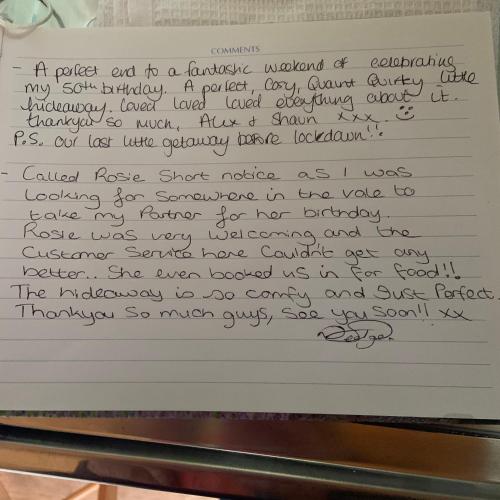 COMMENTS
- A perfect end to a fantastic weekend of celebrating
my 50th birthday. A perfect, Cosy, Quaint Quirky little
hideaway. Loved loved loved everything about it.
thankyou so much, Alex & Shaun xxx.
P.S. our last little getaway before lockdown!!
- Called Rosie Short notice as I was
Looking for Somewhere in the vale to
take my Partner for her birthday.
Rosie was very welcoming and the
Customer Service here Couldn't get any
better.. She even booked us in for food!!
The hideaway is so comfy and Just Perfect.
Thankyou So much guys, See you Soon!! xx